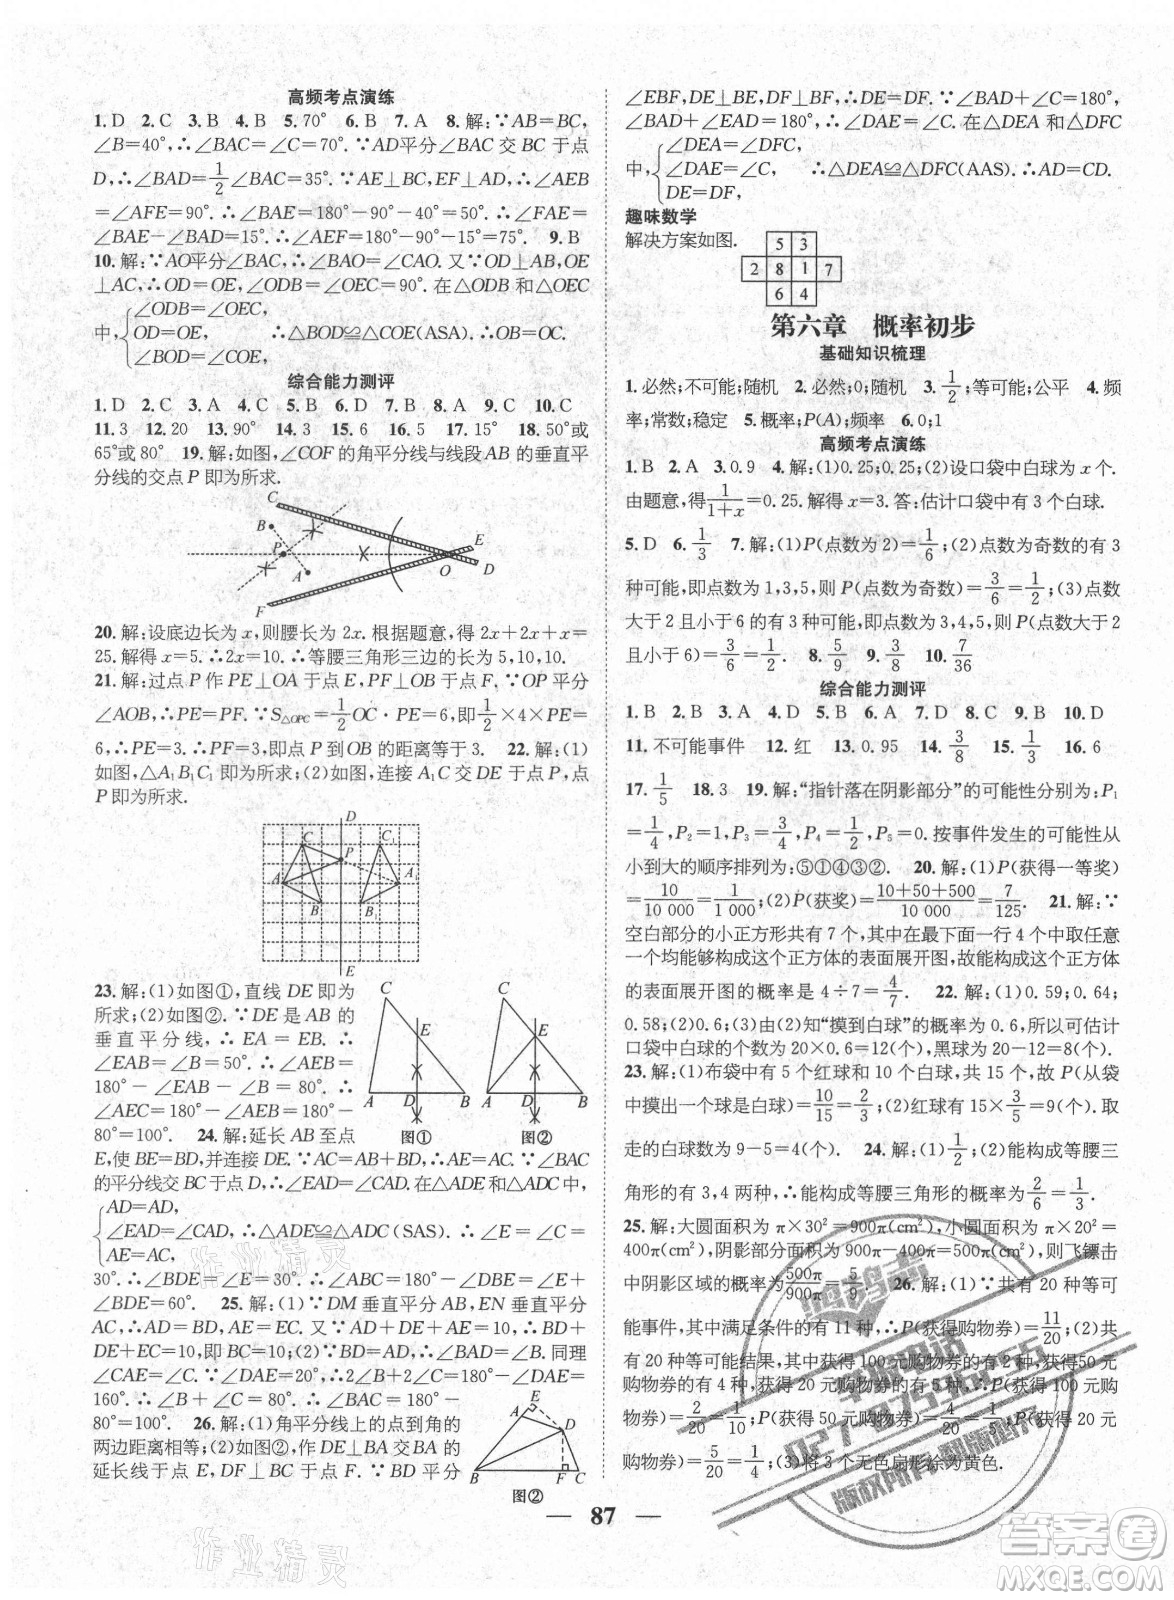 高频考点演练
1.D 2.C 3.B 4.B 5.70° 6.B 7.A 8.解:∵AB=BC,
∠B=40°,∴∠BAC=∠C=70°.∵AD平分∠BAC交BC于点
D,∴∠BAD=1/2∠BAC=35°.∵AE⊥BC,EF⊥AD,∴∠AEB
=∠AFE=90°.∴∠BAE=180°-90°-40°=50°.∴∠FAE=
∠BAE-∠BAD=15°.∴∠AEF=180°-90°-15°=75°. 9.B
10.解:∵AO平分∠BAC,∴∠BAO=∠CAO.又∵OD⊥AB,OE⊥
AC,∴OD=OE,∠BDO=∠OEC=90°.在△DBO和△OEC
中,{∠BDO=∠OEC,
OD=OE,
∠BOD=∠COE,
∴△BOD≌△COE(ASA).∴OB=OC.
综合能力测评
1.D 2.C 3.C 4.C 5.B 6.D 7.B 8.A 9.C 10.C
11.3 12.20 13.90° 14.3 15.6 16.6 17.15° 18.50°或
65°或80° 19.解:如图,∠COF的角平分线与线段AB的垂直平
分线的交点P即为所求.
C
B
E
P
A
O
D
F
20.解:设底边长为x,则腰长为2x.根据题意,得2x+2x+x=
25.解得x=5.∴2x=10.∴等腰三角形三边的长为5,10,10.
21.解:过点P作PE⊥OA于点E,PF⊥OB于点F.∵OP平分
∠AOB,∴PE=PF.∵S△OPC=1/2OC·PE=6,即1/2×4×PE=
6,∴PE=3.∴PF=3,即点P到OB的距离等于3. 22.解:(1)
如图,△A₁B₁C₁即为所求;(2)如图,连接A₁C交DE于点P,
点P即为所求.
D
C
C₁
P
A
A₁
B
B₁
E
23.解:(1)如图①,直线DE即为
所求;(2)如图②.∵DE是AB的
垂直平分线,∴EA=EB.∴
∠EAB=∠B=50°.∴∠AEB=
180°-∠EAB-∠B=80°.∴
∠AEC=180°-∠AEB=180°-
80°=100°. 24.解:延长AB至点
C
E
A
D
B
图①
C
E
A
D
B
图②
E,使BE=BD,并连接DE.∵AC=AB+BD,∴AC=AE.∵∠BAC
的平分线交BC于点D,∴∠EAD=∠CAD.在△ADE和△ADC中,
{AD=AD,
∠EAD=∠CAD,∴△ADE≌△ADC(SAS).∴∠E=∠C=
AE=AC,
30°.∴∠BDE=∠E=30°.∴∠ABC=180°-∠DBE=∠E+
∠BDE=60°. 25.解:(1)∵DM垂直平分AB,EN垂直平分
AC,∴DB=DA,EA=EC.又∵△ADE的周长是10,∴DA+
DE+EA=10.∴BD+DE+EC=10,即BC=10.(2)∵AB的
垂直平分线为DM,∴BD=AD.∴∠B=∠BAD.同理
∠CAE=∠C.又∵∠DAE=20°,∴2∠B+2∠C+∠DAE=
180°.∴∠B+∠C=80°.∴∠BAD+∠CAE+2∠DAE=
160°. 26.解:(1)角平分线上的点到角的
两边距离相等;(2)如图②,作DE⊥BA交BA的
延长线于点E,DF⊥BC于点F.∵BD平分
E
A
D
B
F
C
图②
∠EBF,DE⊥BE,DF⊥BF,∴DE=DF.∵∠BAD+∠C=180°,
∠BAD+∠EAD=180°,∴∠DAE=∠C.在△DEA和△DFC
中,{∠DEA=∠DFC,
∠DAE=∠C,
DE=DF,
∴△DEA≌△DFC(AAS).∴AD=CD.
趣味数学
解决方案如图.
5 3
2 8 1 7
6 4
第六章 概率初步
基础知识梳理
1.必然;不可能;随机 2.必然;0;随机 3.1/2;等可能;公平 4.频
率;常数;稳定 5.概率;P(A);频率 6.0;1
高频考点演练
1.B 2.A 3.0.9 4.解:(1)0.25;0.25;(2)设口袋中白球为x个.
由题意,得1/(1+x)=0.25.解得x=3.答:估计口袋中有3个白球.
5.D 6.1/3 7.解:(1)P(点数为2)=1/6;(2)点数为奇数的有3
种可能,即点数为1,3,5,则P(点数为奇数)=3/6=1/2;(3)点数
大于2且小于6的有3种可能,即点数为3,4,5,则P(点数大于2
且小于6)=3/6=1/2. 8.5/9 9.3/8 10.7/36
综合能力测评
1.B 2.B 3.D 4.D 5.B 6.A 7.A 8.B 9.B 10.D
11.不可能事件 12.红 13.0.95 14.3/8 15.1/3 16.6
17.1/5 18.3 19.解:“指针落在阴影部分”的可能性分别为:P₁
=1/4,P₂=1,P₃=3/4,P₄=1/2,P₅=0.按事件发生的可能性从
小到大的顺序排列为:⑤①④③②. 20.解:(1)P(获得一等奖)
=10/10 000=1/1 000;(2)P(获奖)=(10+50+500)/10 000=7/125. 21.解:∵
空白部分的小正方形共有7个,其中在最下面一行4个中取任意
一个均能够构成这个正方体的表面展开图,故能构成这个正方体
的表面展开图的概率是4÷7=4/7. 22.解:(1)0.59;0.64;
0.58;(2)0.6;(3)由(2)知“摸到白球”的概率为0.6,所以可估计
口袋中白球的个数为20×0.6=12(个),黑球为20-12=8(个).
23.解:(1)布袋中有5个红球和10个白球,共15个,故P(从袋
中摸出一个球是白球)=10/15=2/3;(2)红球有15×3/5=9(个).取
走的白球数为9-5=4(个). 24.解:(1)1/2;(2)能构成等腰三
角形的有3,4两种,∴能构成等腰三角形的概率为2/6=1/3.
25.解:大圆面积为π×30²=900π(cm²),小圆面积为π×20²=
400π(cm²),阴影部分面积为900π-400π=500π(cm²),则飞镖击
中阴影区域的概率为500π/900π=5/9. 26.解:(1)∵共有20种等可
能事件,其中满足条件的有11种,∴P(获得购物券)=11/20;(2)共
有20种等可能结果,其中获得100元购物券的有2种,获得50元
购物券的有4种,获得20元购物券的有5种,∴P(获得100元
购物券)=2/20=1/10;P(获得50元购物券)=4/20=1/5;P(获得20元
购物券)=5/20=1/4;(3)将3个无色扇形涂为黄色.
— 87 —
作业精灵
作业精灵
鹦鹉南
版权所有 翻版必究
答案卷
MXQE.COM